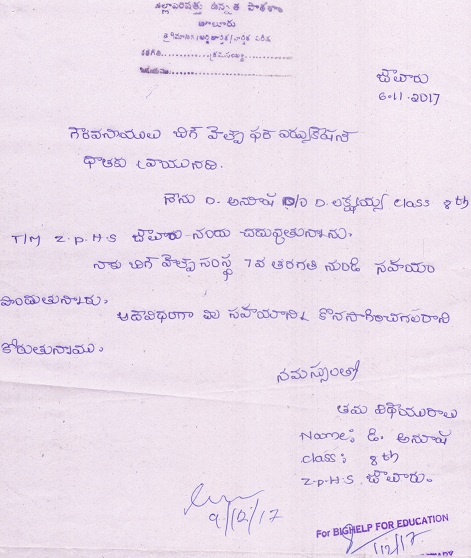 జిల్లాపరిషత్తు ఉన్నత పాఠశాల
తరగతి
జౌలూరు
6-11-2017
గౌరవనీయులు బిగ్ హెల్ప్ ఫర్ ఎడ్యుకేషన్
దాతకు వ్రాయునది.
నేను D. అనూష D/o D. లక్ష్మయ్య class 8th
T/M Z.P.H.S నందు చదువుతున్నాను.
నాకు బిగ్ హెల్ప్ సంస్థ 7వ తరగతి నుండి సహాయం
పొందుతున్నారు.
అదేవిధంగా మీ సహాయాన్ని కొనసాగించగలరాని
కోరుతున్నాము.
నమస్సులతో
తమ విధేయురాలు
Name: డి. అనూష
class: 8th
Z.P.H.S.
9/12/17
For BIGHELP FOR EDUCATION
/12/17